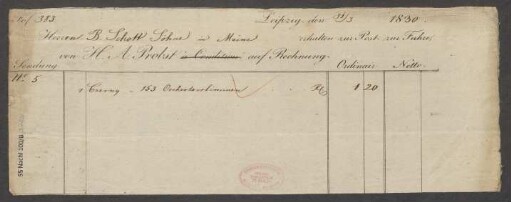 383
Leipzig, den 11/3 1830.
Herren B Schott Söhne in Mainz erhalten zur Post zur Fuhre
von H. A. Probst à Condition auf Rechnung. Ordinair. Netto.
Sendung
No. 5
1 Czerny 153 Orchesterstimmen 1 20
55 Nachl